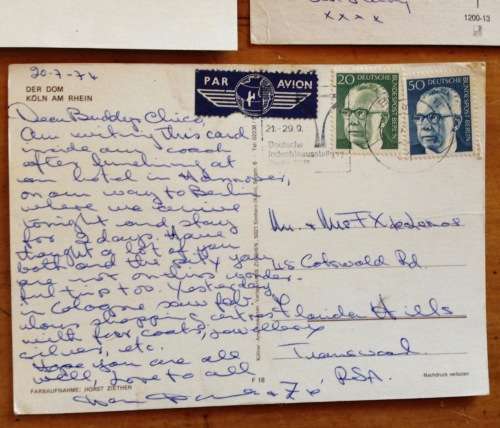 1200-13
x x x x
20-7-74
DER DOM
KÖLN AM RHEIN
PAR AVION
20 DEUTSCHE BUNDESPOST BERLIN
50 DEUTSCHE BUNDESPOST BERLIN
21.-29.9.
Deutsche
Industrieausstellung
Dear Buddy & Chico,
Am writing this card
inside my coach
after lunching at
an hotel in Hannover,
on our way to Berlin
where we arrive
tonight and stay
for 2 days. Have
thought a lot of you
both and the pity you
are not on this wonder-
ful trip too. Yesterday
in Cologne saw fabu-
lous shopping centres
with fur coats, jewellery
silver, etc.
Hope you are all
well, love to all
Mr. + Mrs FX
45 Cotswold Rd.
Hills
Transvaal
RSA.
F 18
Nachdruck verboten
FARBAUFNAHME: HORST ZIETHEN